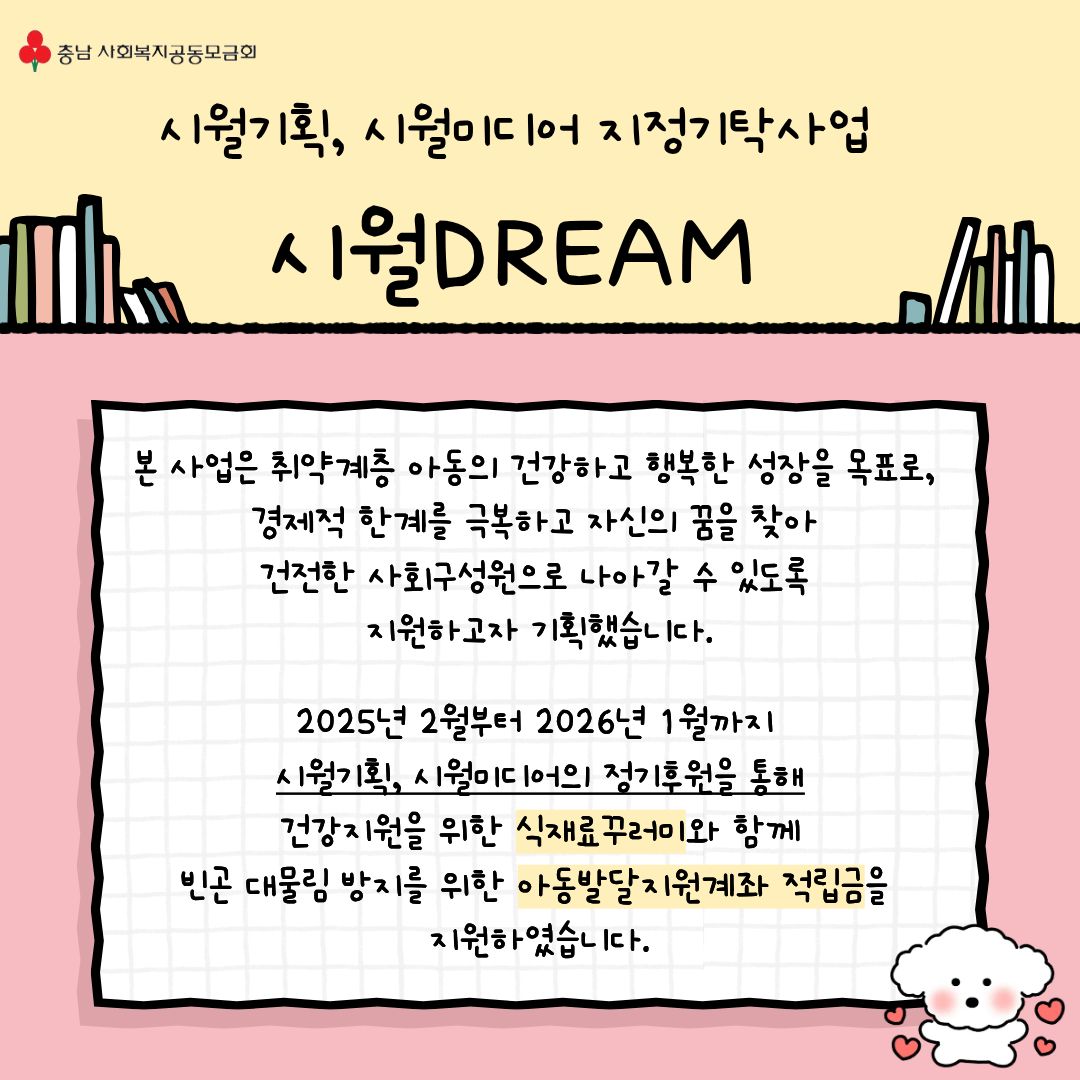 충남 사회복지공동모금회
시월기획, 시월미디어 지정기탁사업
시월DREAM
본 사업은 취약계층 아동의 건강하고 행복한 성장을 목표로,
경제적 한계를 극복하고 자신의 꿈을 찾아
건전한 사회구성원으로 나아갈 수 있도록
지원하고자 기획했습니다.
2025년 2월부터 2026년 1월까지
시월기획, 시월미디어의 정기후원을 통해
건강지원을 위한 식재료꾸러미와 함께
빈곤 대물림 방지를 위한 아동발달지원계좌 적립금을
지원하였습니다.